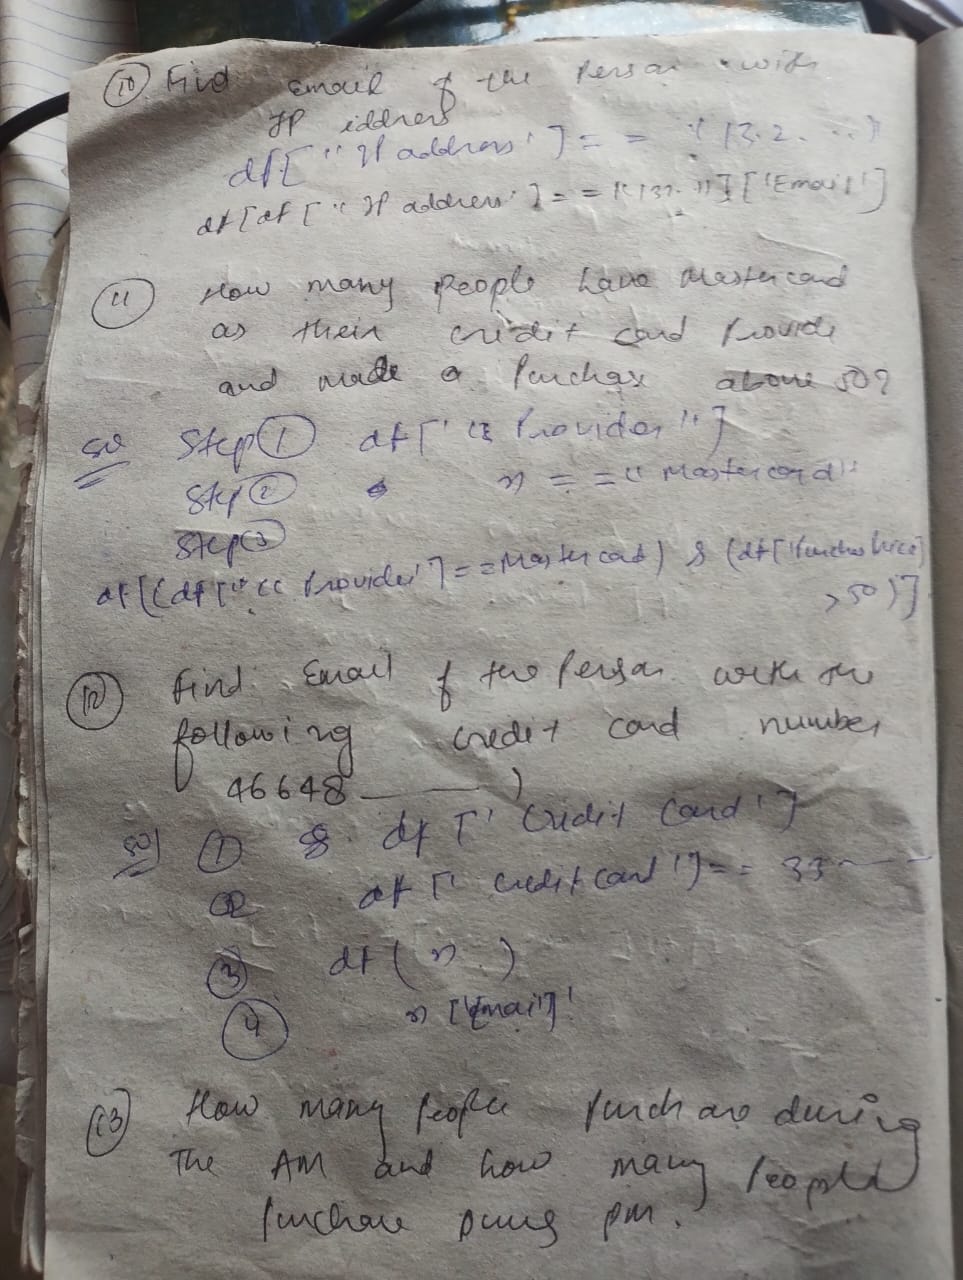 (10) Find Email of the Person with
IP iddress
df["IP address'] = = "(13.2...")
df[df["IP address'] = = "132. "]['Email']
(11) How many People have Mastercard
as their credit card Provide
and made a Purchase above 50?
Sol Step(1) df['CC Provider"]
Step(2) x = = "Mastercard"
Step(3)
df[(df["CC Provider'] = = Mastercard) & (df['Purchase Price]
>50)]
(12) Find Email of the Person with the
following credit card number
46648 )
Sol (1) df['Credit Card']
(2) df['credit card'] = = 33
(3) df(x)
(4) x['Email]'
(13) How many People Purchase during
The AM and how many People
Purchase pm.